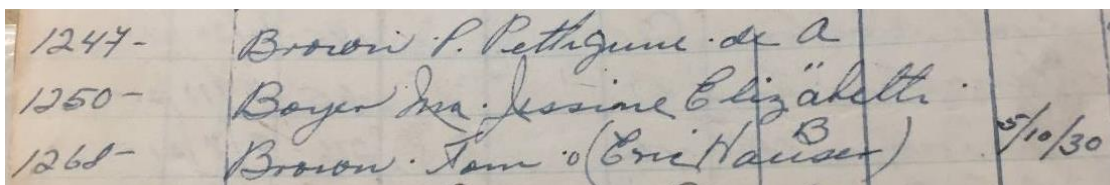 1247- Brown P. Pettigune de A
1250- Boyer Ma. Jessime Elizabeth "
1268- Brown Tom o (Eric Hauser) B 5/10/30